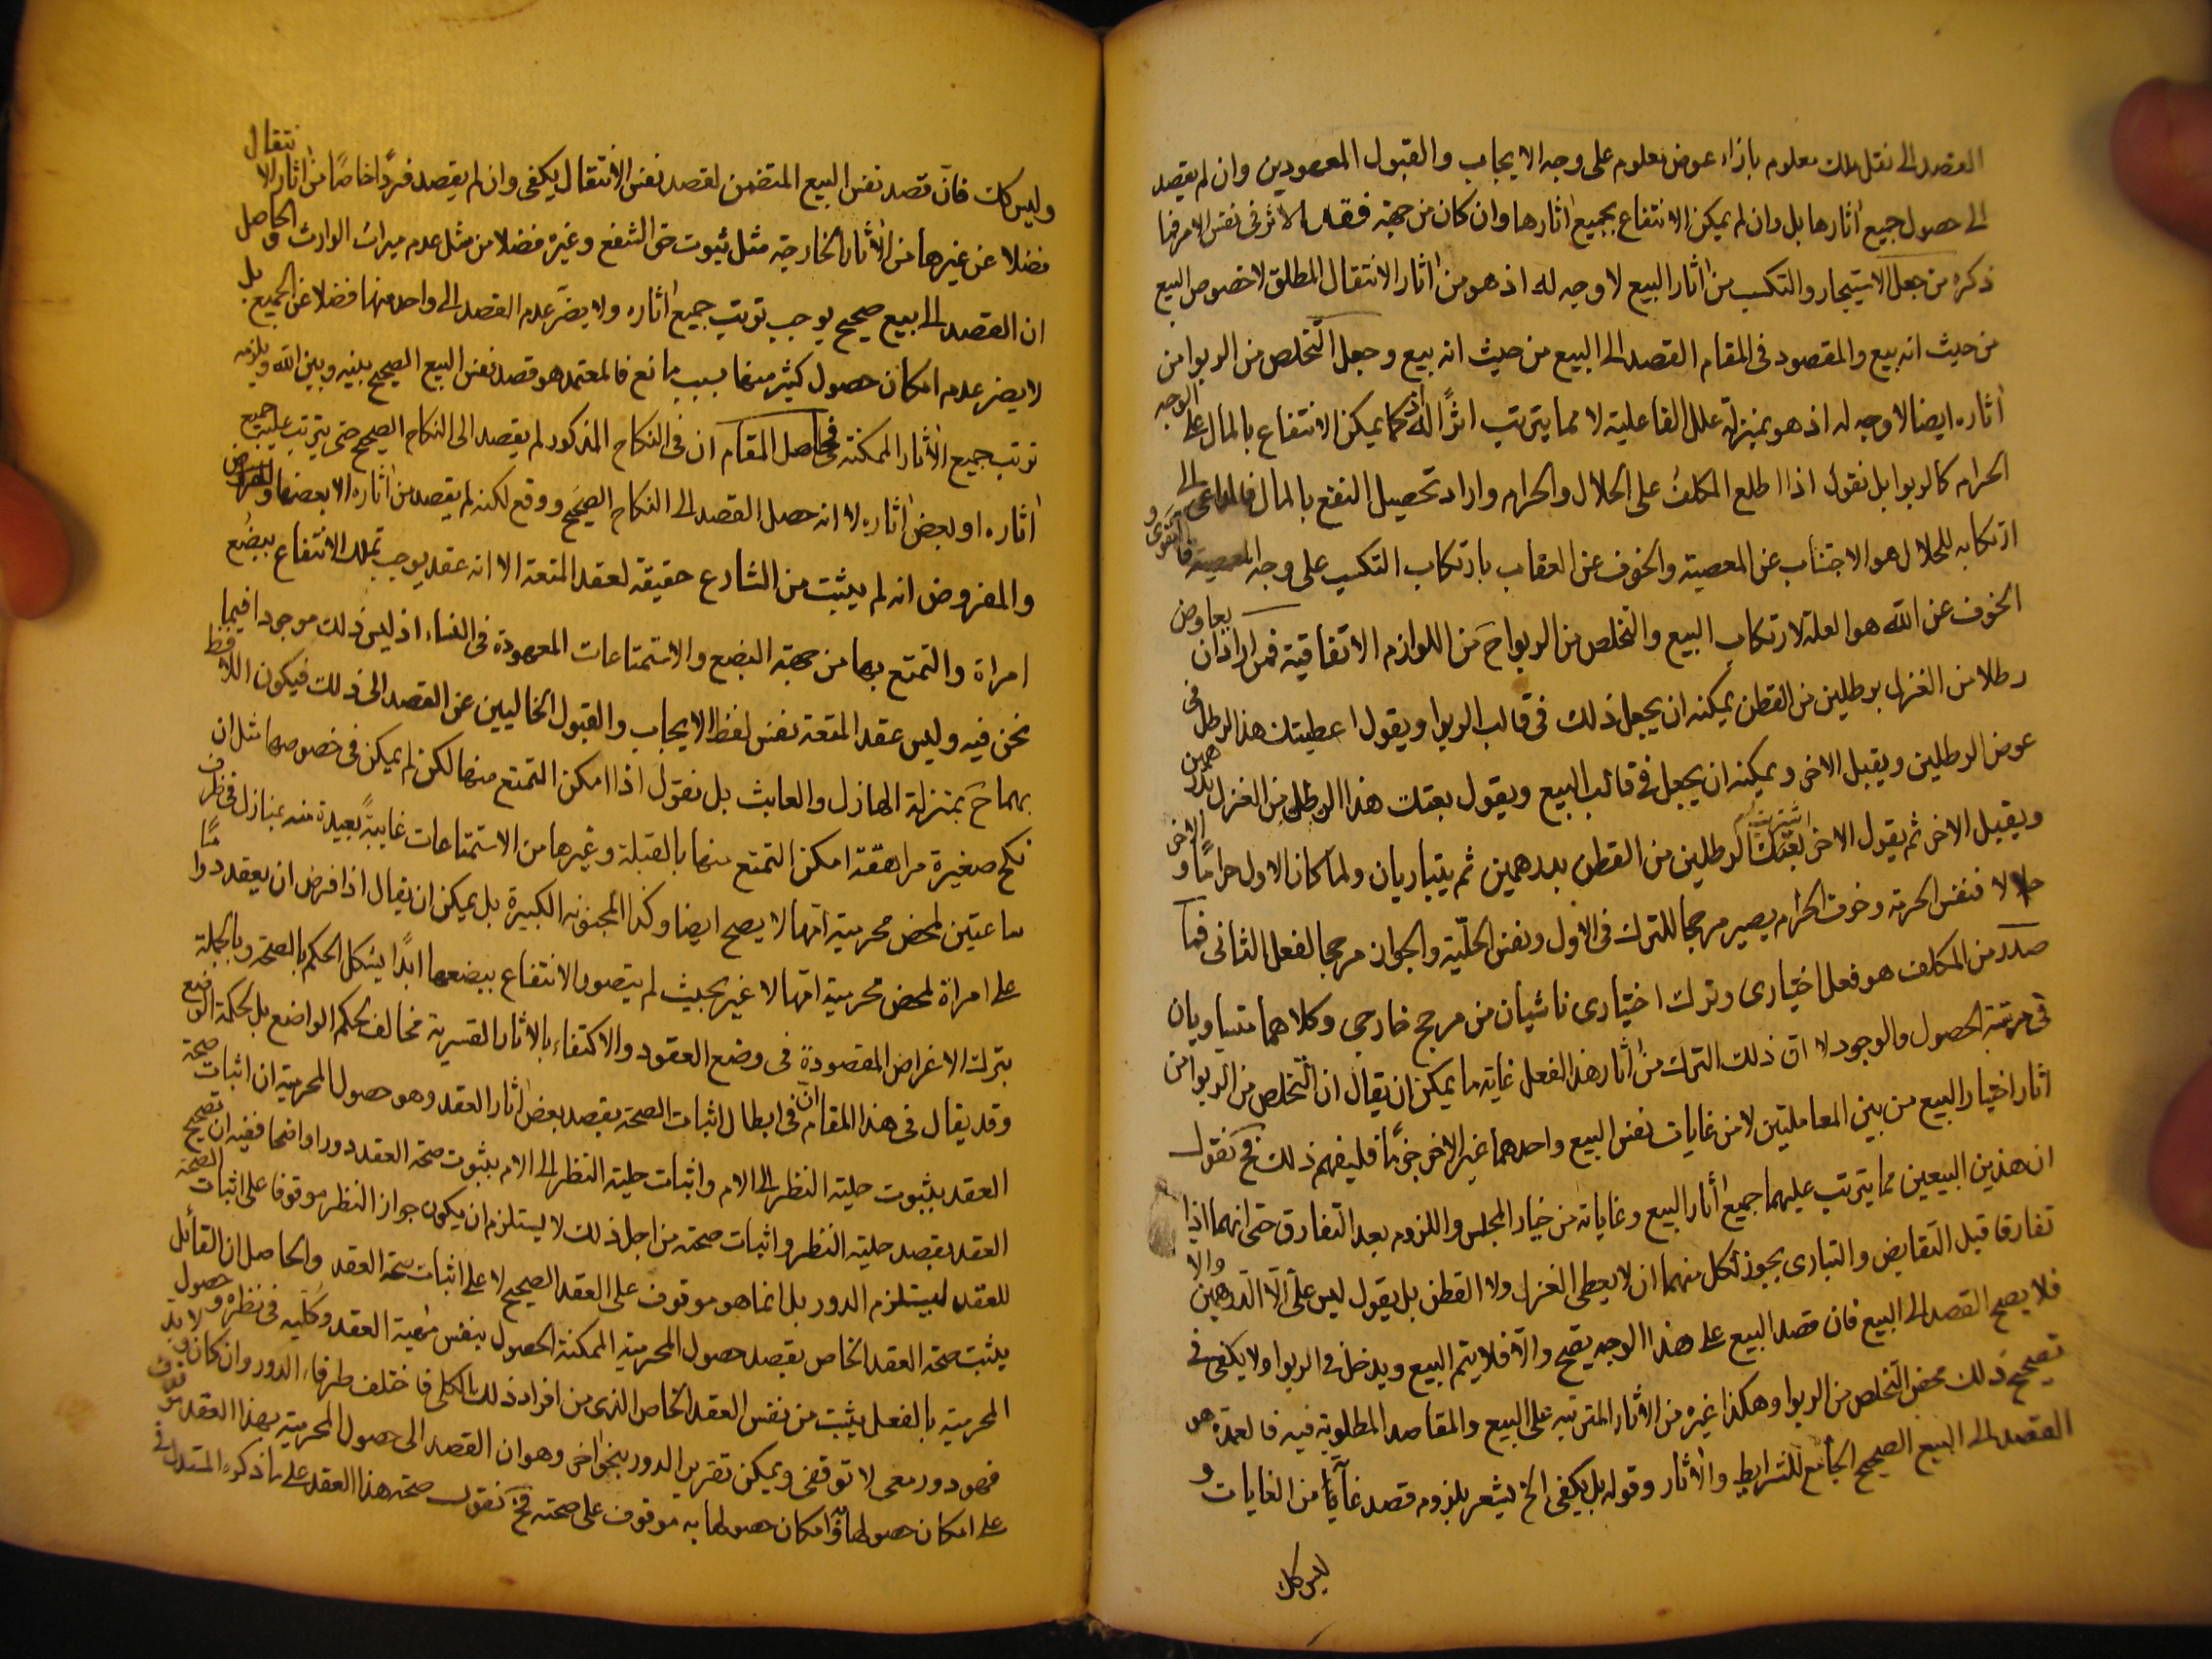 القصد الى نقل ملك معلوم بازاء عوض معلوم على وجه الايجاب والقبول المعهودين وان لم يقصد
الى حصول جميع اثارها بل وان لم يمكن الانتفاع بجميع اثارها وان كان من جهة فقد الاثر فى نفس الامر فما
ذكره من جعل الاستيجار والتكسب من اثار البيع لا وجه له اذ هو من اثار الانتقال المطلق لا خصوص البيع
من حيث انه بيع والمقصود فى المقام القصد الى البيع من حيث انه بيع وجعل التخلص من الربوا من
اثاره ايضا لا وجه له اذ هو بمنزلة علل الفاعلية لا مما يترتب اثرا له اذ كما يمكن الانتفاع بالمال على الوجه
الحرام كالربوا بل نقول اذا اطلع المكلف على الحلال والحرام واراد تحصيل النفع بالمال فالداعى الى
ارتكابه للحلال هو الاجتناب عن المعصية والخوف عن العقاب بارتكاب التكسب على وجه المعصية فالتقوى و
الخوف عن الله هو العلة لارتكاب البيع والتخلص من الربوا ح من اللوازم الاتفاقية فمن اراد ان يعاوض
رطلا من الغزل برطلين من القطن يمكنه ان يجعل ذلك فى قالب الربوا ويقول اعطيتك هذا الرطل فى
عوض الرطلين ويقبل الاخر ويمكنه ان يجعل فى قالب البيع ويقول بعتك هذا الرطل من الغزل بدرهمين
ويقبل الاخر ثم يقول الاخر اشتريت الرطلين من القطن بدرهمين ثم يتباريان ولما كان الاول حراما والاخر
حلالا فنفس الحرمة وخوف الحرام يصير مرجحا للترك فى الاول ونفس الحلية والجواز مرجحا لفعل الثانى فما
صدر من المكلف هو فعل اختيارى وترك اختيارى ناشيان من مرجح خارجى وكلاهما متساويان
فى مرتبة الحصول والوجود لا ان ذلك الترك من اثار هذا الفعل غاية ما يمكن ان يقال ان التخلص من الربوا من
اثار اختيار البيع من بين المعاملتين لا من غايات نفس البيع واحدهما غير الاخر جزما فليفهم ذلك فح نقول
ان هذين البيعين مما يترتب عليهما جميع اثار البيع وغاياته من خيار المجلس واللزوم بعد التفارق حتى انهما اذا
تفارقا قبل التقابض والتبارى يجوز لكل منهما ان لا يعطى الغزل ولا القطن بل يقول ليس على الا الدرهمين والا
فلا يصح القصد الى البيع فان قصد البيع على هذا الوجه يصح والا فلا يتم البيع ويدخل فى الربوا ولا يكفى فى
تصحيح ذلك محض التخلص من الربوا وهكذا غيره من الاثار المترتبة على البيع والمقاصد المطلوبة فيه فالعمدة هو
القصد الى البيع الصحيح الجامع للشرايط والاثار وقوله بل يكفى الخ يشعر بلزوم قصد غاية ما من الغايات و
ليس كك
وليس كك فان قصد نفس البيع المتضمن لقصد نفس الانتقال يكفى وان لم يقصد فردا خاصا من اثار الانتقال
فضلا عن غيرها من الاثار الخارجية مثل ثبوت حق الشفع وغيره فضلا من مثل عدم ميراث الوارث والحاصل
ان القصد الى بيع صحيح يوجب ترتب جميع اثاره ولا يضر عدم القصد الى واحد منها فضلا عن الجميع بل
لا يضر عدم امكان حصول كثير منها بسبب مانع فالمعتمد هو قصد نفس البيع الصحيح بينه وبين الله ويلزمه
ترتب جميع الاثار الممكنة فحاصل المقام ان فى النكاح المذكور لم يقصد الى النكاح الصحيح حتى يترتب عليه جميع
اثاره او بعض اثاره لا انه حصل القصد الى النكاح الصحيح ووقع لكنه لم يقصد من اثاره الا بعضها
والمفروض انه لم يثبت من الشارع حقيقة لعقد المتعة الا انه عقد يوجب تملك الانتفاع ببضع
امراة والتمتع بها من جهة البضع والاستمتاعات المعهودة فى النساء اذ ليس ذلك موجودا فيما
نحن فيه وليس عقد المتعة نفس لفظ الايجاب والقبول الخاليين عن القصد الى ذلك فيكون اللافظ
بهما ح بمنزلة الهازل والعابث بل نقول اذا امكن التمتع منها لكن لم يمكن فى خصوصها مثل ان
نكح صغيرة مراهقة امكن التمتع منها بالقبلة وغيرها من الاستمتاعات غايبة بعيدة منه بمنازل فى ظرف
ساعتين لمحض محرمية امها لا يصح ايضا وكذا المجنونة الكبيرة بل يمكن ان يقال اذا فرض ان يعقد دواما
على امراة لمحض محرمية امها لا غير بحيث لم يتصور الانتفاع ببضعها ابدا يشكل الحكم بالصحة وبالجملة
بترك الاغراض المقصودة فى وضع العقود والاكتفاء بالاثار القسرية مخالف لحكم الواضع بل لحكمة الوضع
وقد يقال فى هذا المقام ان فى ابطال اثبات الصحة بقصد بعض اثار العقد وهو حصول المحرمية ان اثبات صحة
العقد بثبوت حلية النظر الى الام واثبات حلية النظر الى الام بثبوت صحة العقد دورا واضحا ففيه ان تصحيح
العقد بقصد حلية النظر واثبات صحته من اجل ذلك لا يستلزم ان يكون جواز النظر موقوفا على اثبات الصحة
للعقد ليستلزم الدور بل انما هو موقوف على العقد الصحيح لا على اثبات صحة العقد والحاصل ان القائل
يثبت صحة العقد الخاص بقصد حصول المحرمية الممكنة الحصول بنفس مهية العقد وكليه فى نظره وحصول
المحرمية بالفعل يثبت من نفس العقد الخاص الذى من افراد ذلك الكلى فاختلف طرفاء الدور وان كان ولابد
فهو دور معى لا توقفى ويمكن تقرير الدور بنحو اخر وهو ان القصد الى حصول المحرمية بهذا العقد موقوف
على امكان حصولها وامكان حصولها به موقوف على صحته فح نقول صحة هذا العقد على ما ذكره المستدل